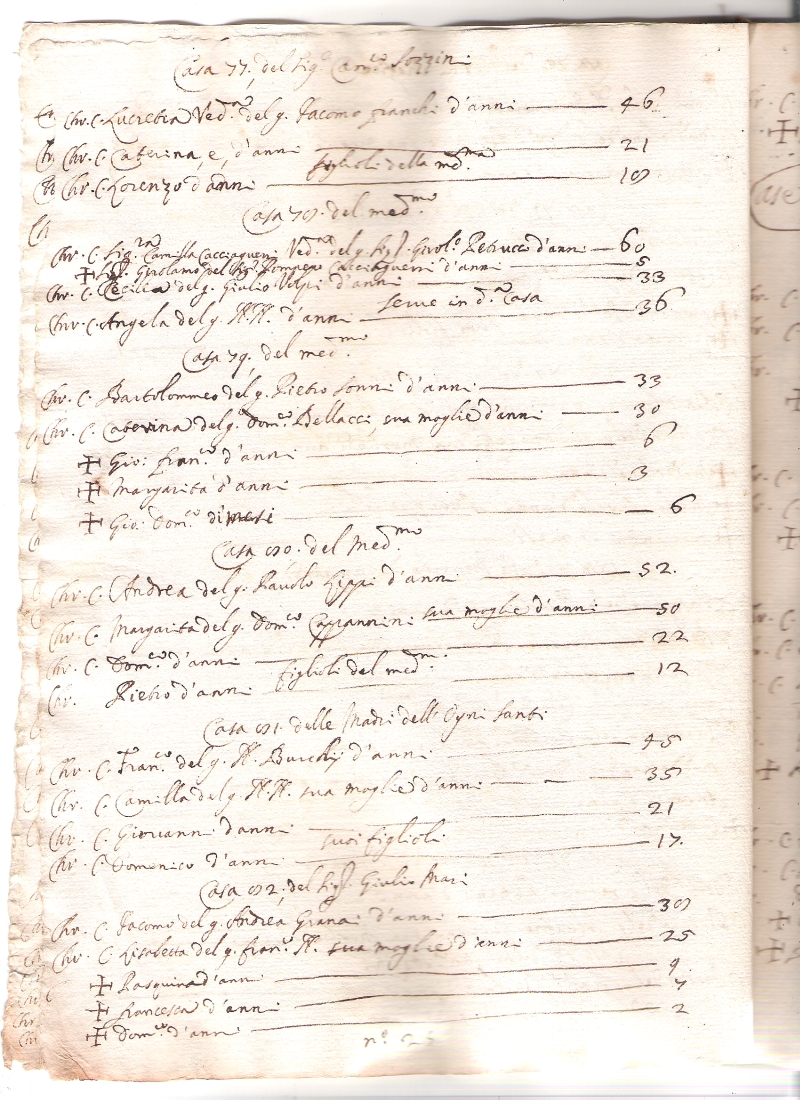 Casa 77. del Sig.r Cav.re Sozzini
Chr. C. Lucretia Ved.a del q. Jacomo Franchi d'anni — 46
Chr. C. Caterina, e, d'anni — 21
figlioli della med.ma
Chr. C. Lorenzo d'anni — 18
Casa 78. del med.mo
Chr. C. Sig.ra Camilla Cacciaguerri Ved.a del q. Sig.r Girol.o Petrucci d'anni — 60
✠ Girolamo del Sig.r Pompeo Cacciaguerri d'anni — 5
Chr. C. Cecilia del q. Giulio Volpi d'anni — 33
Chr. C. Angela del q. N.N. d'anni serve in d.a Casa — 36
Casa 79. del med.mo
Chr. C. Bartolommeo del q. Pietro Sonni d'anni — 33
Chr. C. Caterina del q. Dom.co Bellacci, sua moglie d'anni — 30
✠ Gio: Fran.co d'anni — 6
✠ Margarita d'anni — 3
✠ Gio: Dom.co di mesi — 6
Casa 80. del Med.mo
Chr. C. Andrea del q. Pavolo Lippi d'anni — 52.
Chr. C. Margarita del q. Dom.co Cappannini sua moglie d'anni — 50
Chr. C. Dom.co d'anni — 22
figlioli del med.mo
Chr. Pietro d'anni — 12
Casa 81. delle Madri dell'Ogni Santi
Chr. C. Fran.co del q. N. Burchi d'anni — 45
Chr. C. Camilla del q. N.N. sua moglie d'anni — 35
Chr. C. Giovanni d'anni — 21
suoi figlioli
Chr. C. Domenico d'anni — 17.
Casa 82. del Sig.r Giulio Mari
Chr. C. Jacomo del q. Andrea Granai d'anni — 38
Chr. C. Lisabetta del q. Fran.co N. sua moglie d'anni — 25
✠ Pasquina d'anni — 9.
✠ Francesca d'anni — 7
✠ Dom.co d'anni — 2
n.o 25